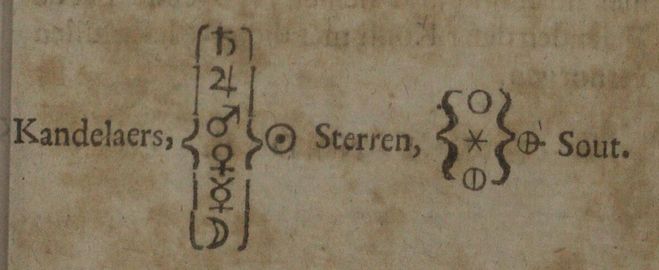 Kandelaers, { ♄ ♃ ♂ ♀ ☿ ☽ } ☉ Sterren, { ○ ✶ ⦶ } ⊕ Sout.